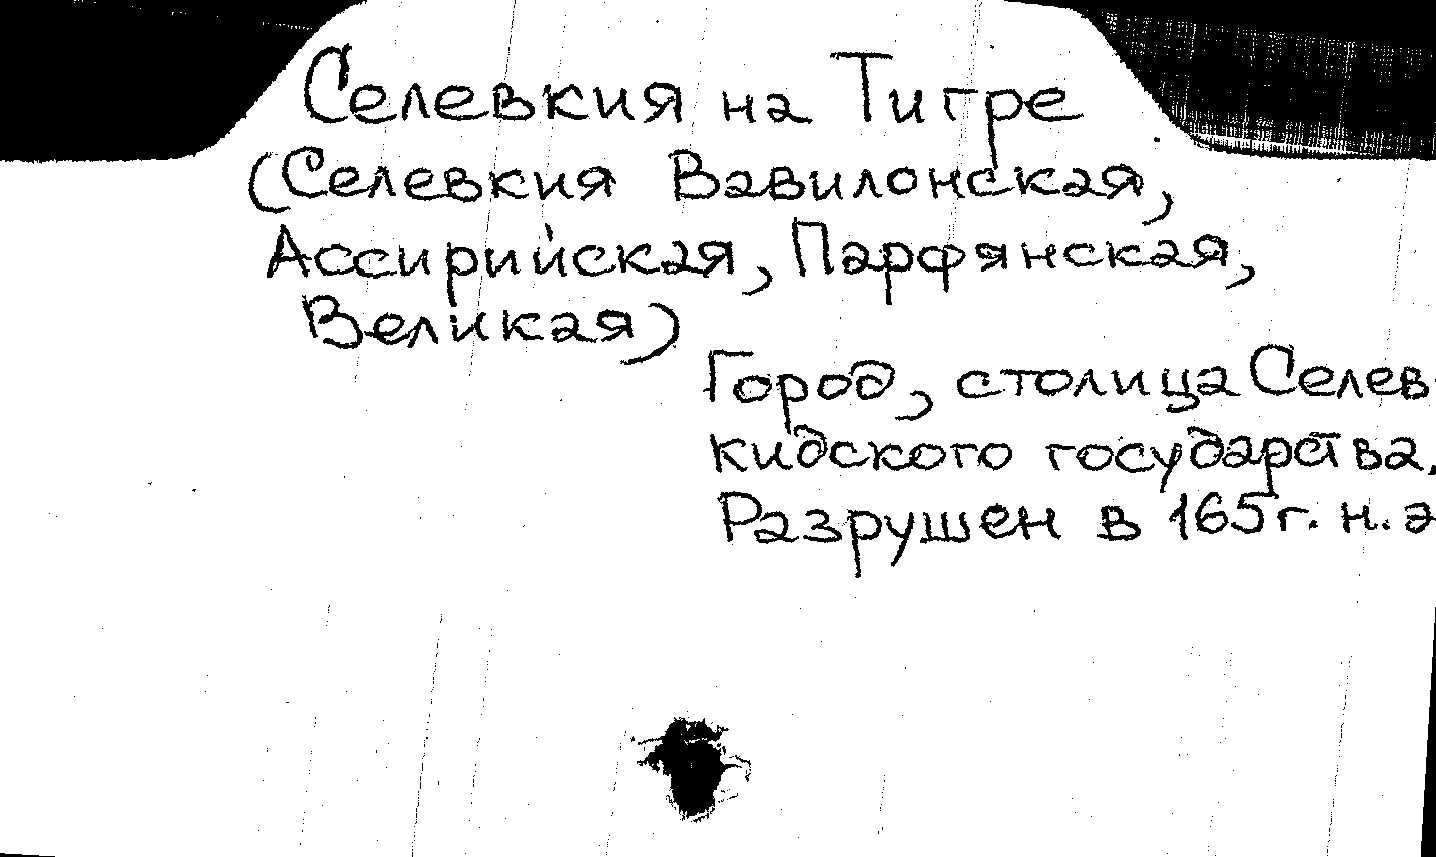 Селевкия на Тигре
(Селевкия Вавилонская,
Ассирийская, Парфянская,
Великая)
Город, столица Селев-
кидского государства.
Разрушен в 165 г. н. э